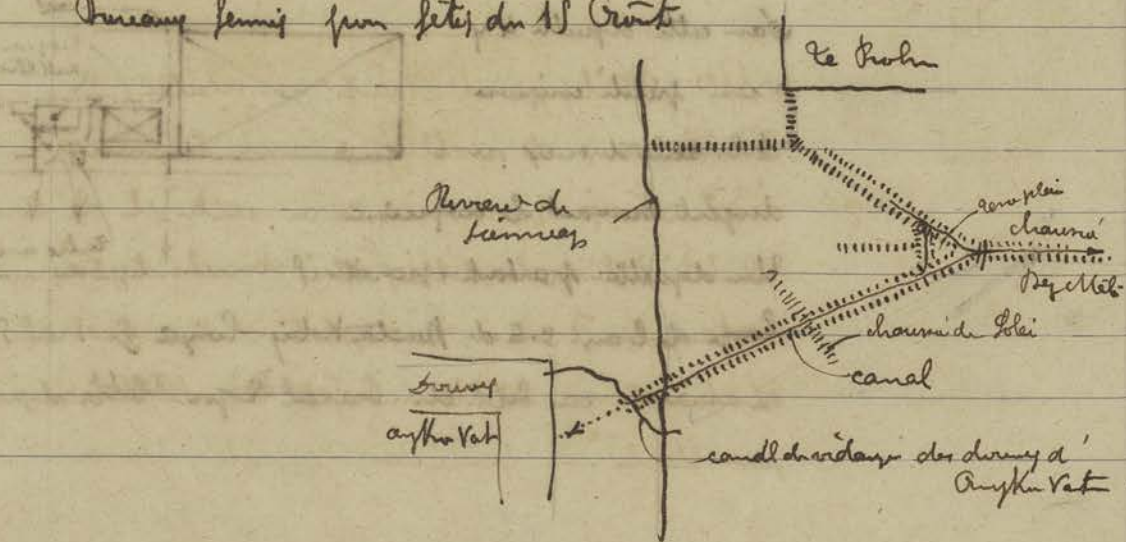 Bureaux fermés pour fêtes du 15 Août
Ta Prohm
Rivière de
Siemreap
terre plein
chaussée
Beng Méléa
chaussée de Solei
canal
Douves
Angkor Vat
canal de vidange des douves d'
Angkor Vat